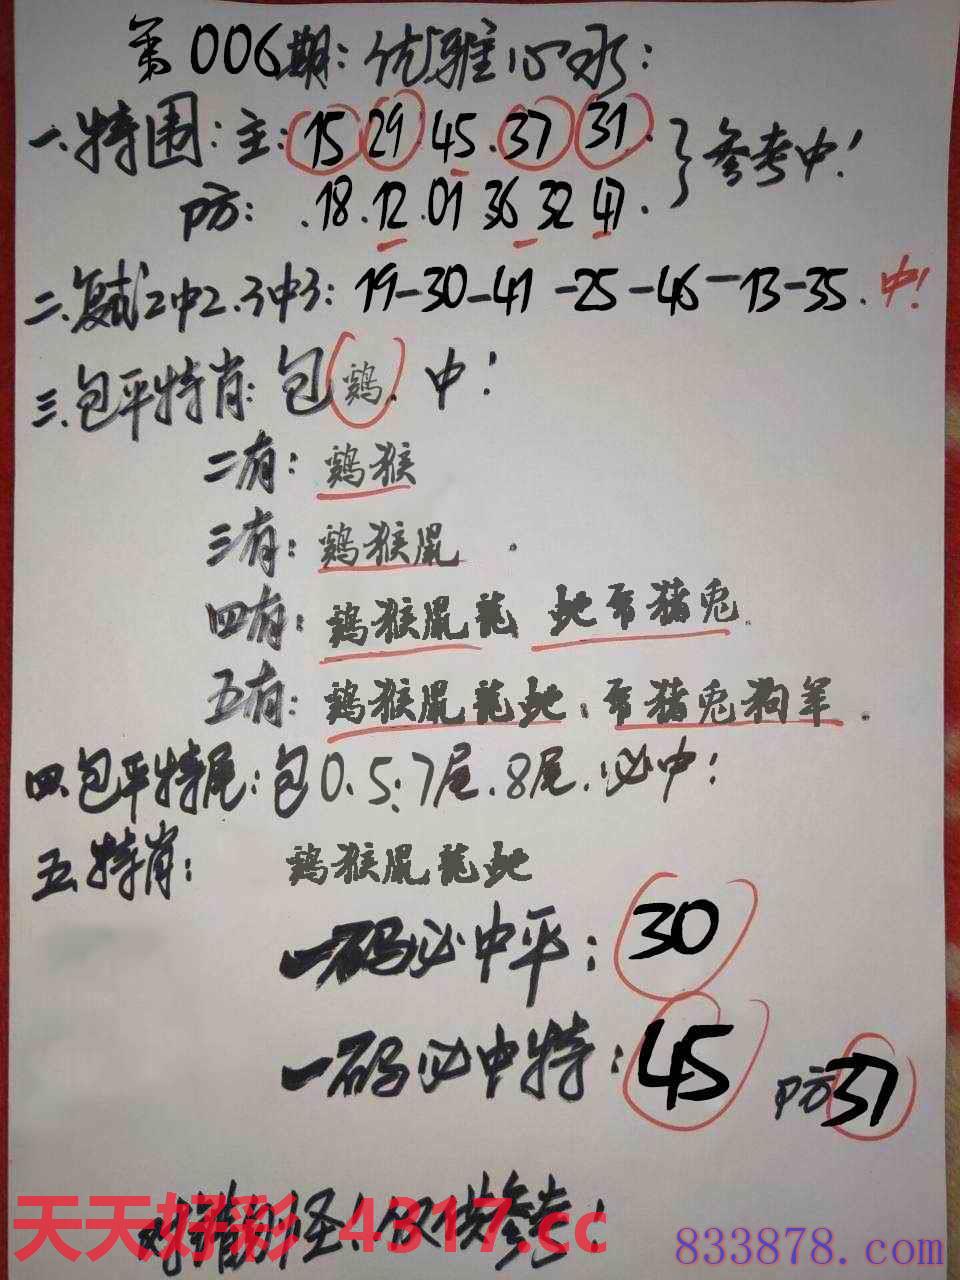 第006期:优雅心水:
一.特围:主:15 29 45.37 31.}参考中!
防:.18.12.01 36 32 47.
二.复试2中2.3中3:19-30-41-25-46-13-35.中!
三.包平特肖:包鸡.中!
二有:鸡猴
三有:鸡猴鼠.
四有:鸡猴鼠龍 蛇马猪兔.
五有:鸡猴鼠龍蛇:马猪兔狗羊.
四.包平特尾:包0.5:7尾.8尾.必中!
五.特肖:鸡猴鼠龍蛇
一码必中平:30
一码必中特:45 防37
对错勿怪!仅供参考!
天天好彩 4317.cc
833878.com